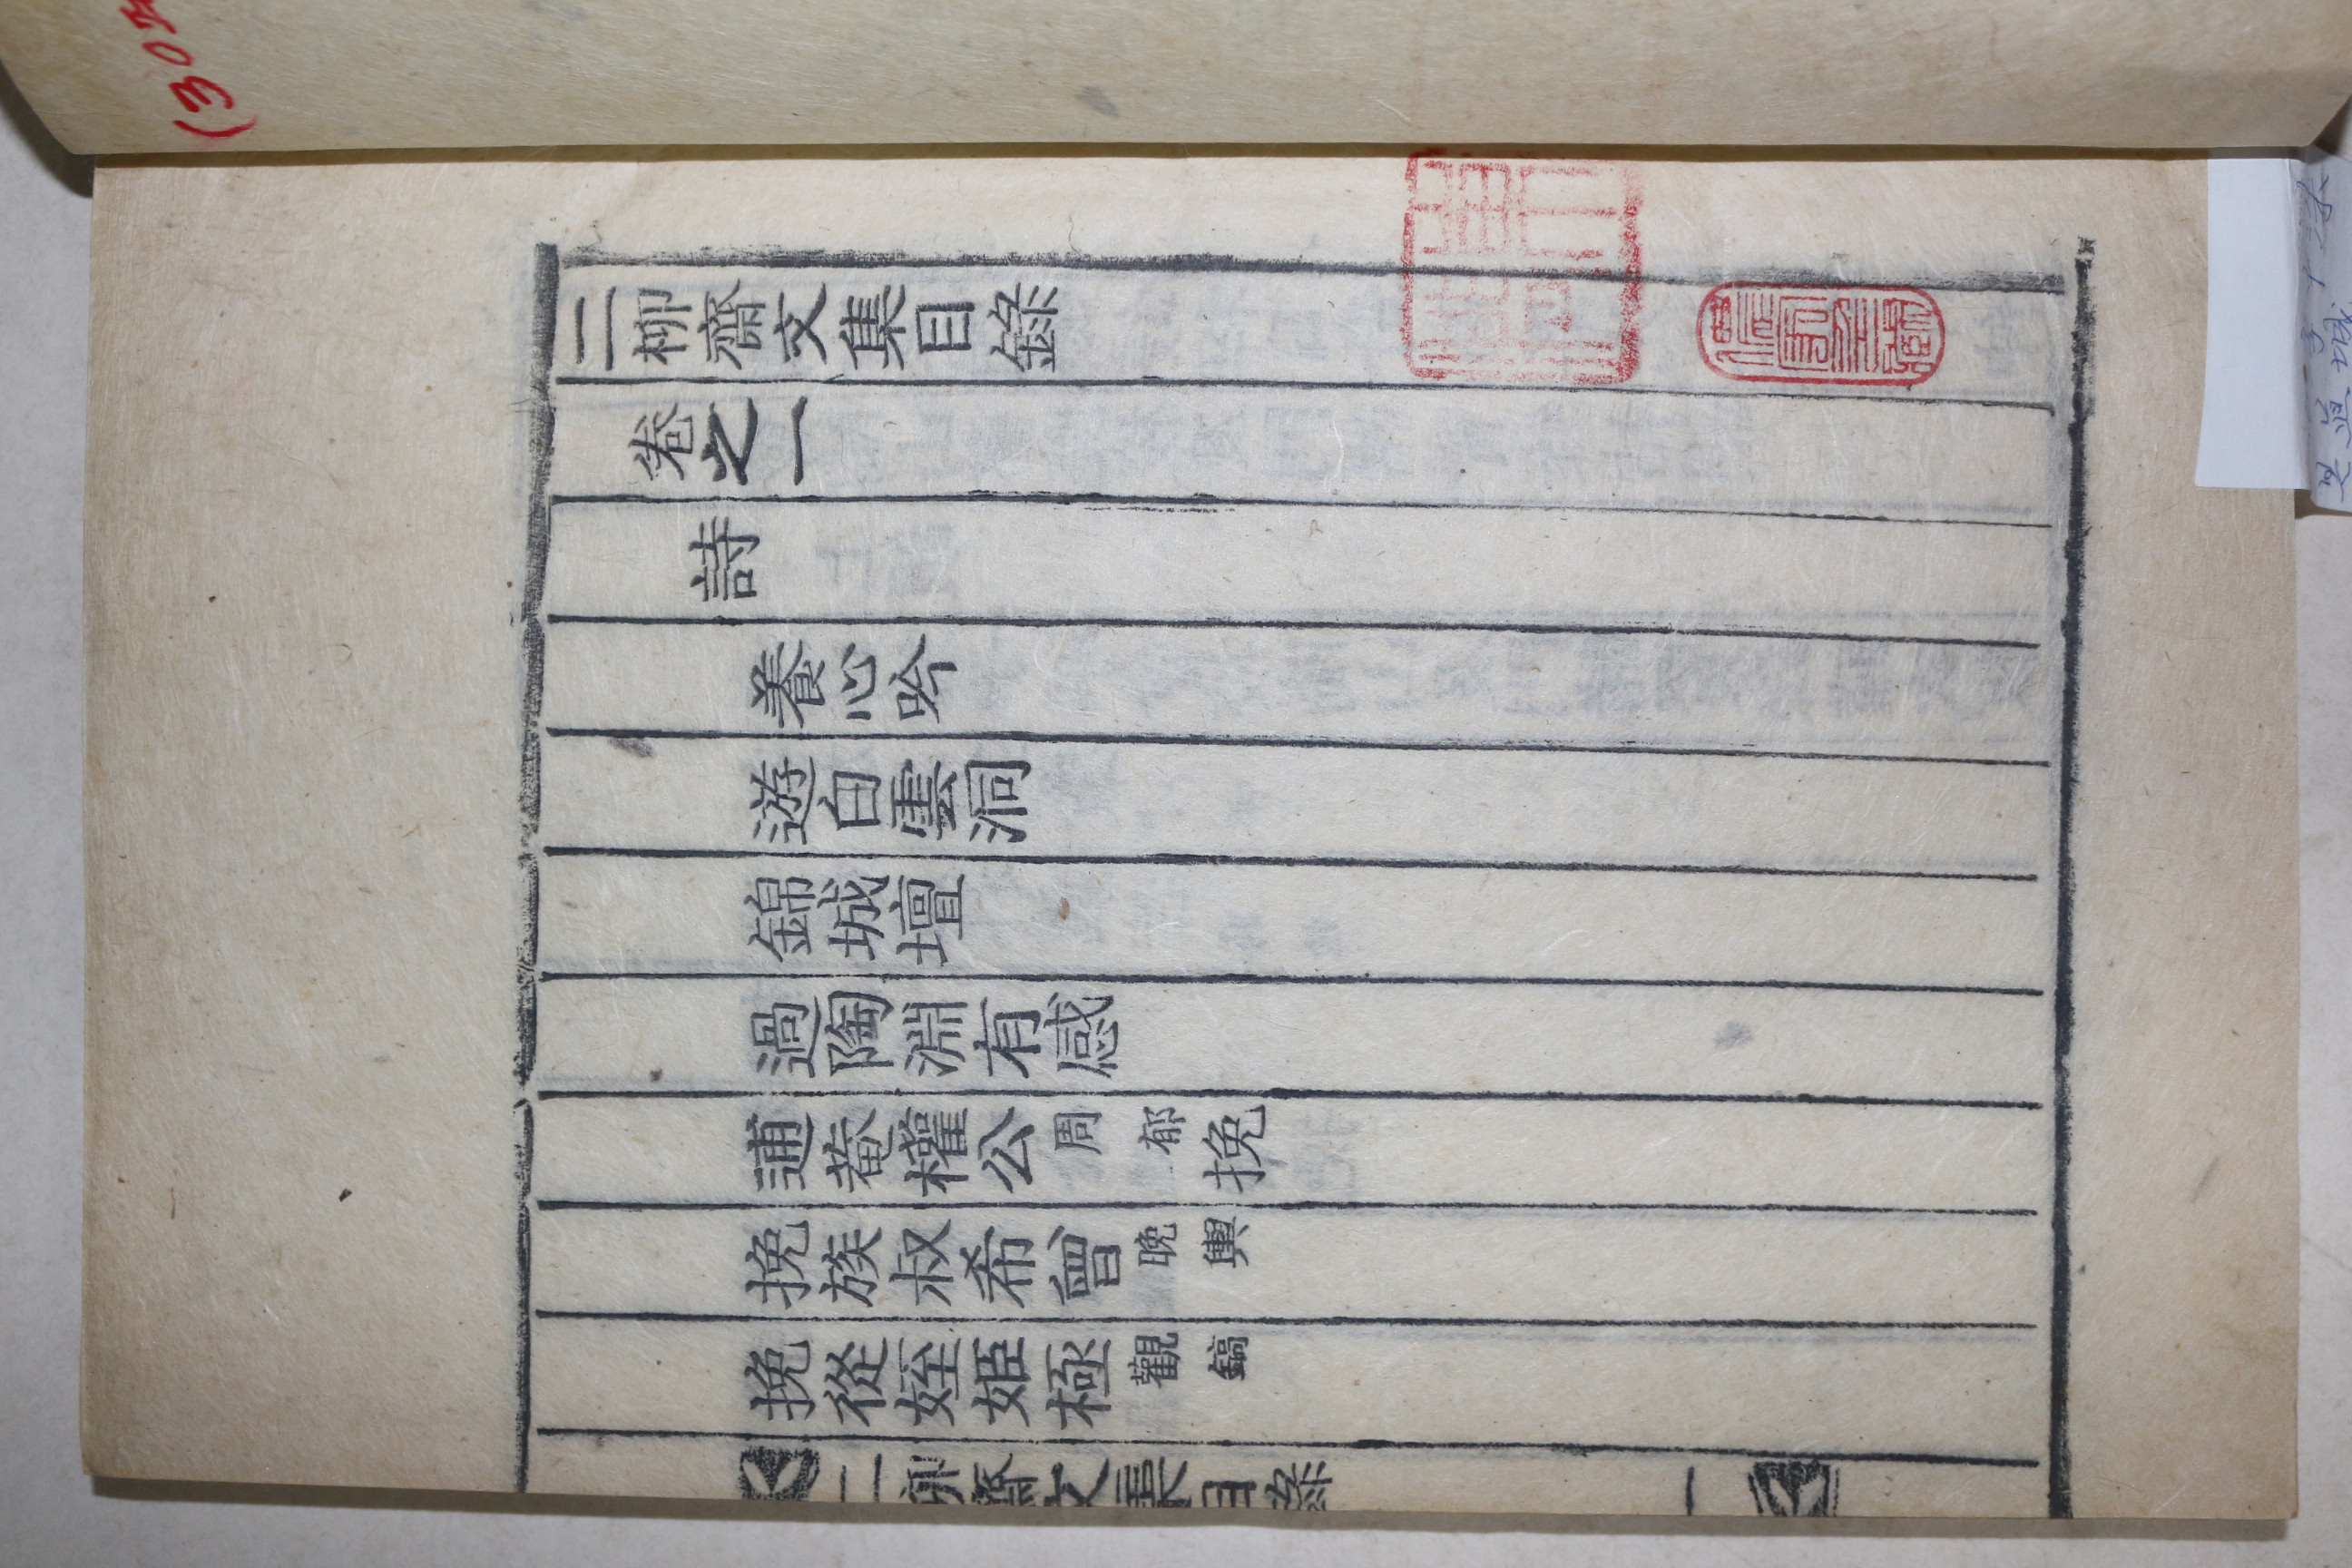 二柳齋文集目錄
卷之一
詩
養心吟
遊白雲洞
錦城壇
過陶淵有感
逋菴權公周郁挽
挽族叔希曾晩輿
挽從姪姬極觀鎬
二柳齋文集目錄 一
(305